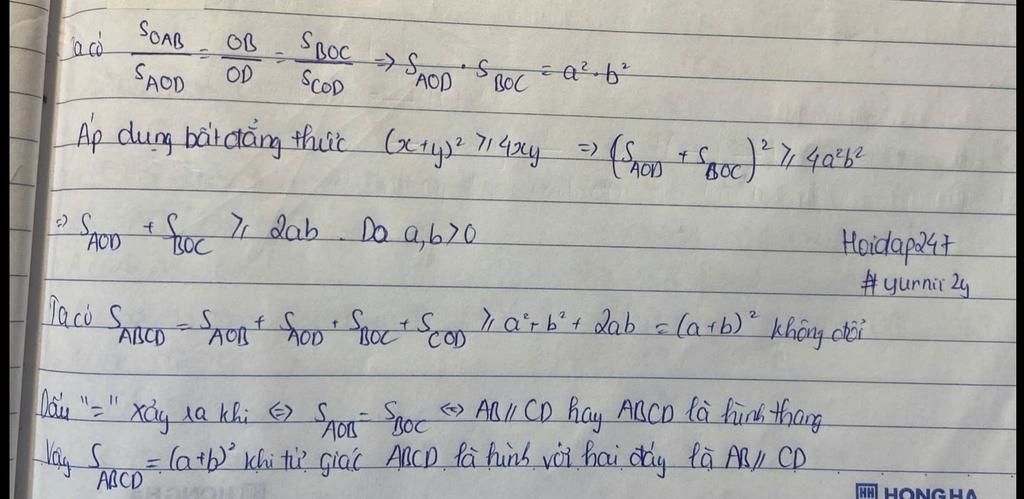 Ta có S_OAB/S_AOD = OB/OD = S_BOC/S_COD => S_AOD . S_BOC = a² . b²
Áp dụng bất đẳng thức (x+y)² ≥ 4xy => (S_AOD + S_BOC)² ≥ 4a²b²
=> S_AOD + S_BOC ≥ 2ab. Do a,b>0
Hoidap247
#yurnii2y
Ta có S_ABCD = S_AOB + S_AOD + S_BOC + S_COD ≥ a² + b² + 2ab = (a+b)² không đổi
Dấu "=" xảy ra khi <=> S_AOB = S_BOC <=> AB // CD hay ABCD là hình thang
Vậy S_ABCD = (a+b)² khi tứ giác ABCD là hình với hai đáy là AB // CD
HH HONG HA